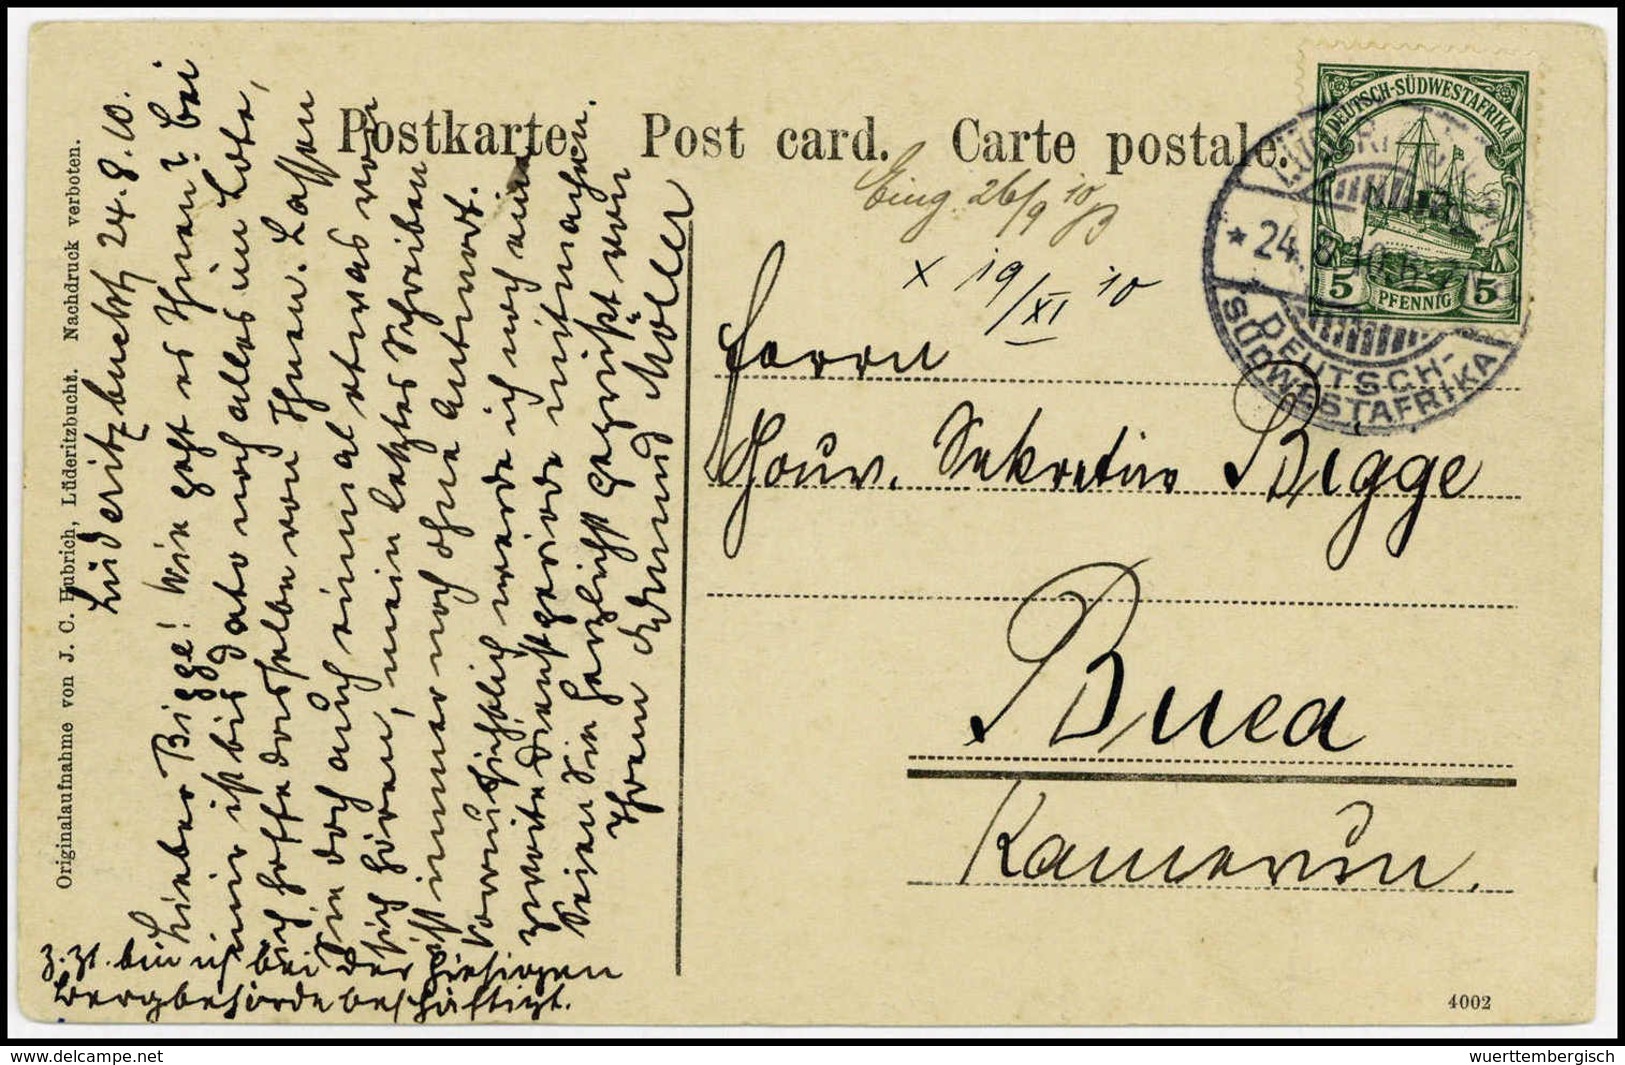 Postkarte. Post card. Carte postale.
Eing 26/9 10
x 19/XI 10
Herrn
Gouv. Sekretär Bigge
Buea
Kamerun.
DEUTSCH-SÜDWESTAFRIKA
5 PFENNIG 5
* 24.8.10.6-7
DEUTSCH-
SÜDWESTAFRIKA
Originalaufnahme von J. C. Hubrich, Lüderitzbucht. Nachdruck verboten.
Lüderitzbucht 24.8.10.
Lieber Bigge! Wie geht es Ihnen? Bei
mir ist bis dato noch alles im Lote,
ich hoffe dasselbe von Ihnen. Lassen
Sie doch auch einmal etwas von
sich hören, mein letztes Schreiben
ist immer noch ohne Antwort.
Voraussichtlich werde ich noch eine
zweite Dienstperiode mitmachen.
Seien Sie herzlichst gegrüßt von
Ihrem Edmund Möller
z. Zt. bin ich bei der hiesigen
Bergbehörde beschäftigt.
4002
wuerttembergisch